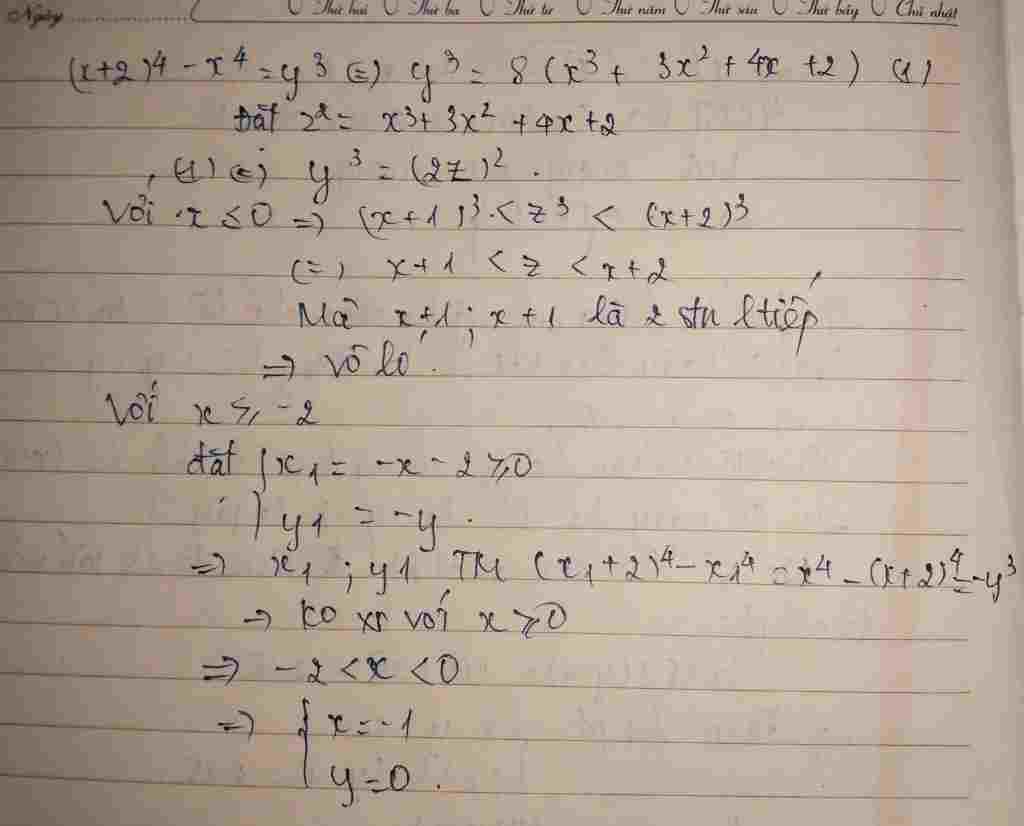 Ngày Thứ hai Thứ ba Thứ tư Thứ năm Thứ sáu Thứ bảy Chủ nhật
(x+2)⁴ - x⁴ = y³ (=) y³ = 8 (x³ + 3x² + 4x + 2) (1)
Đặt z² = x³ + 3x² + 4x + 2
(1) (=) y³ = (2z)².
Với x ≤ 0 => (x+1)³ < z³ < (x+2)³
(=) x+1 < z < x+2
Mà x+1 ; x+1 là 2 stn ltiếp
=> vô lo'.
Với x ≤ -2
đặt { x1 = -x - 2 ≥ 0
y1 = -y.
=> x1 ; y1 TM (x1+2)⁴ - x1⁴ = x⁴ - (x+2)⁴ = -y³
-> ko xr với x ≥ 0
=> -2 < x < 0
=> { x = -1
y = 0.